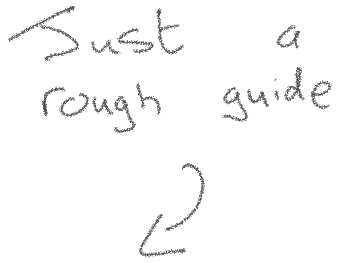 Just a
rough guide